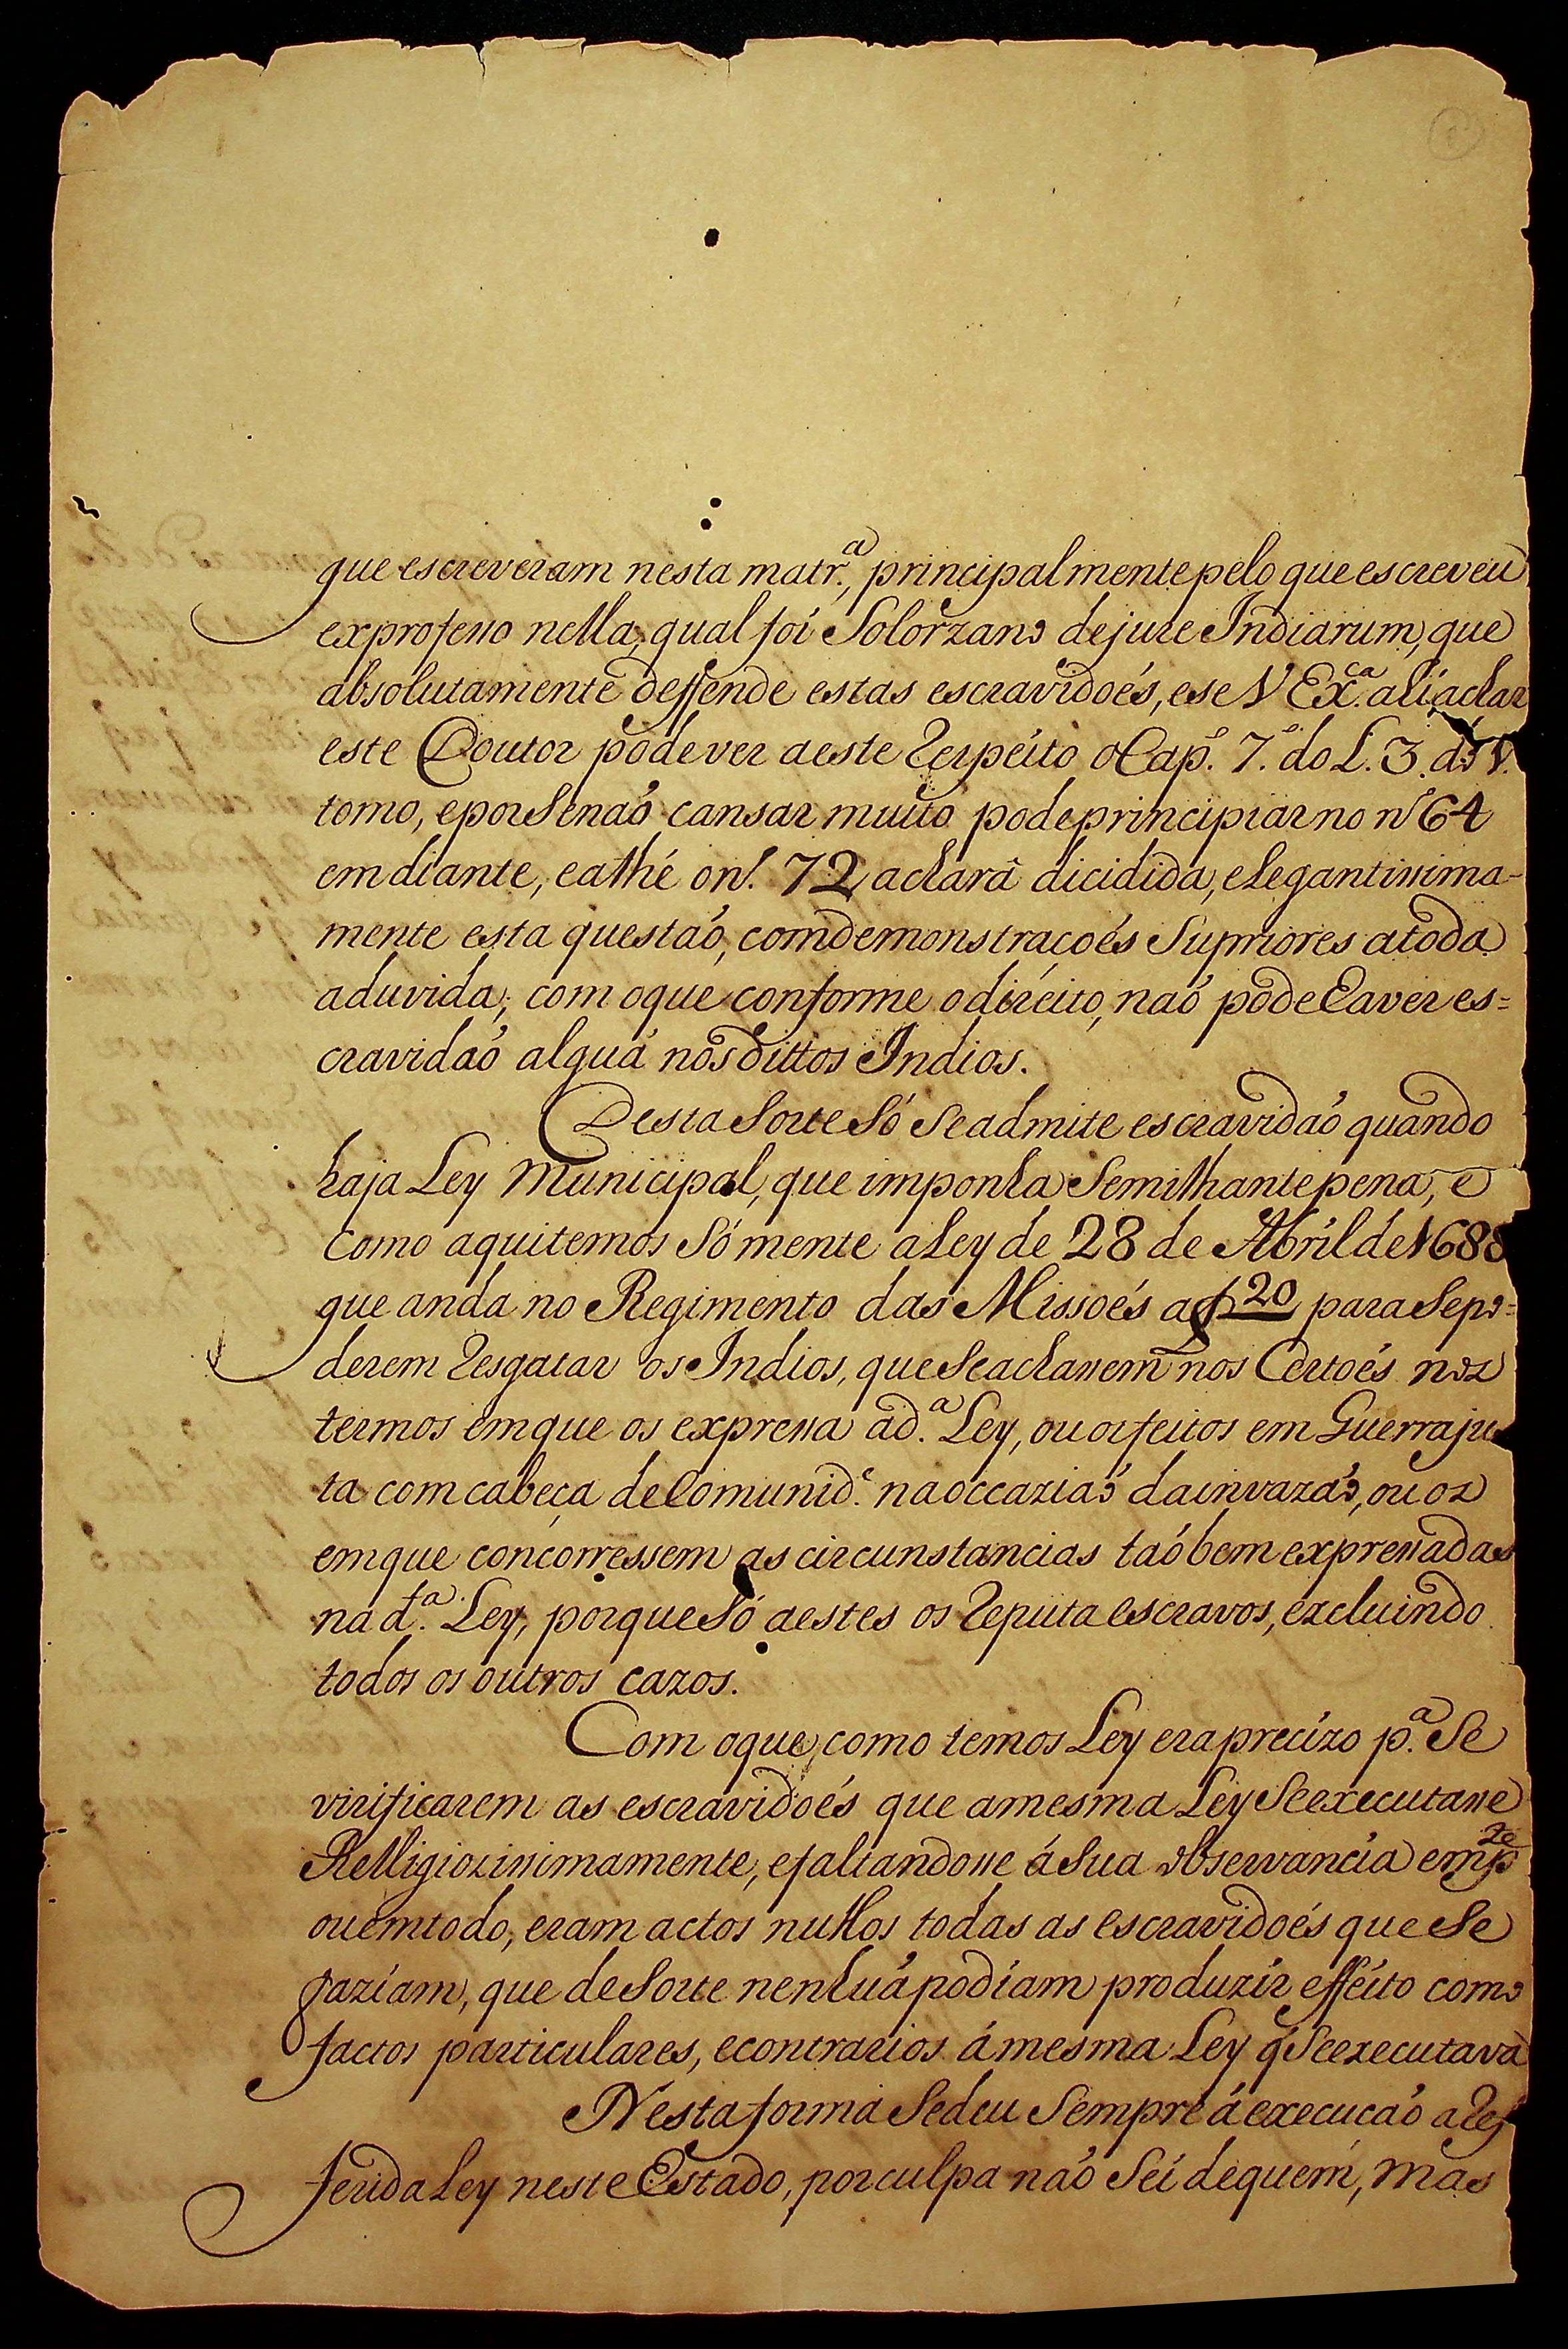 que escreveram nesta matr.ª, principalmente pelo que escreveu
exprofesso nella, qual foi Solorzano dejure Indiarum, que
absolutamente deffende estas escravidoés, ese V Ex.ca ali achar
este Doutor pode ver aeste Respeito oCap.º 7.º do L. 3. do
tomo, epor Senaó cansar muito pode principiar no nº 64
em diante, eathé on.º 72 achará dicidida, elegantissima-
mente esta questaó, com demonstracoés Supriores atoda
aduvida; com oque conforme odireito, naó pode haver es=
cravidaó alguá nos dittos Indios.
Desta Sorte Só Seadmite escravidaó quando
haja Ley Municipal, que imponha Semilhante pena, e
como aquitemos Sómente aLey de 28 de Abril de 1688
que anda no Regimento das Missoés af 20 para Sepo=
derem Resgatar os Indios, que Seachassem nos Certoés nos
termos emque os expressa ad.ª Ley, ou osfeitos em Guerra jus
ta com cabeça de Comunid.e na occaziaó da invazaó, ou os
emque concorressem as circunstancias taóbem expressadas
na d.ta Ley, porque Só aestes os Reputa escravos, excluindo
todos os outros cazos.
Com oque, como temos Ley era precizo p.ª Se
virificarem as escravidoés que amesma Ley Seexecutasse
Relligiozissimamente, efaltandosse á Sua observancia emp.te
ouemtodo, eram actos nullos todas as escravidoés que Se
faziam, que de Sorte nenhuá podiam produzir effeito como
factos particulares, econtrarios á mesma Ley q̃ Seexecutava
Nesta forma Sedeu Sempre á execucaó aRef
ferida Ley neste Estado, por culpa naó Sei dequem, mas